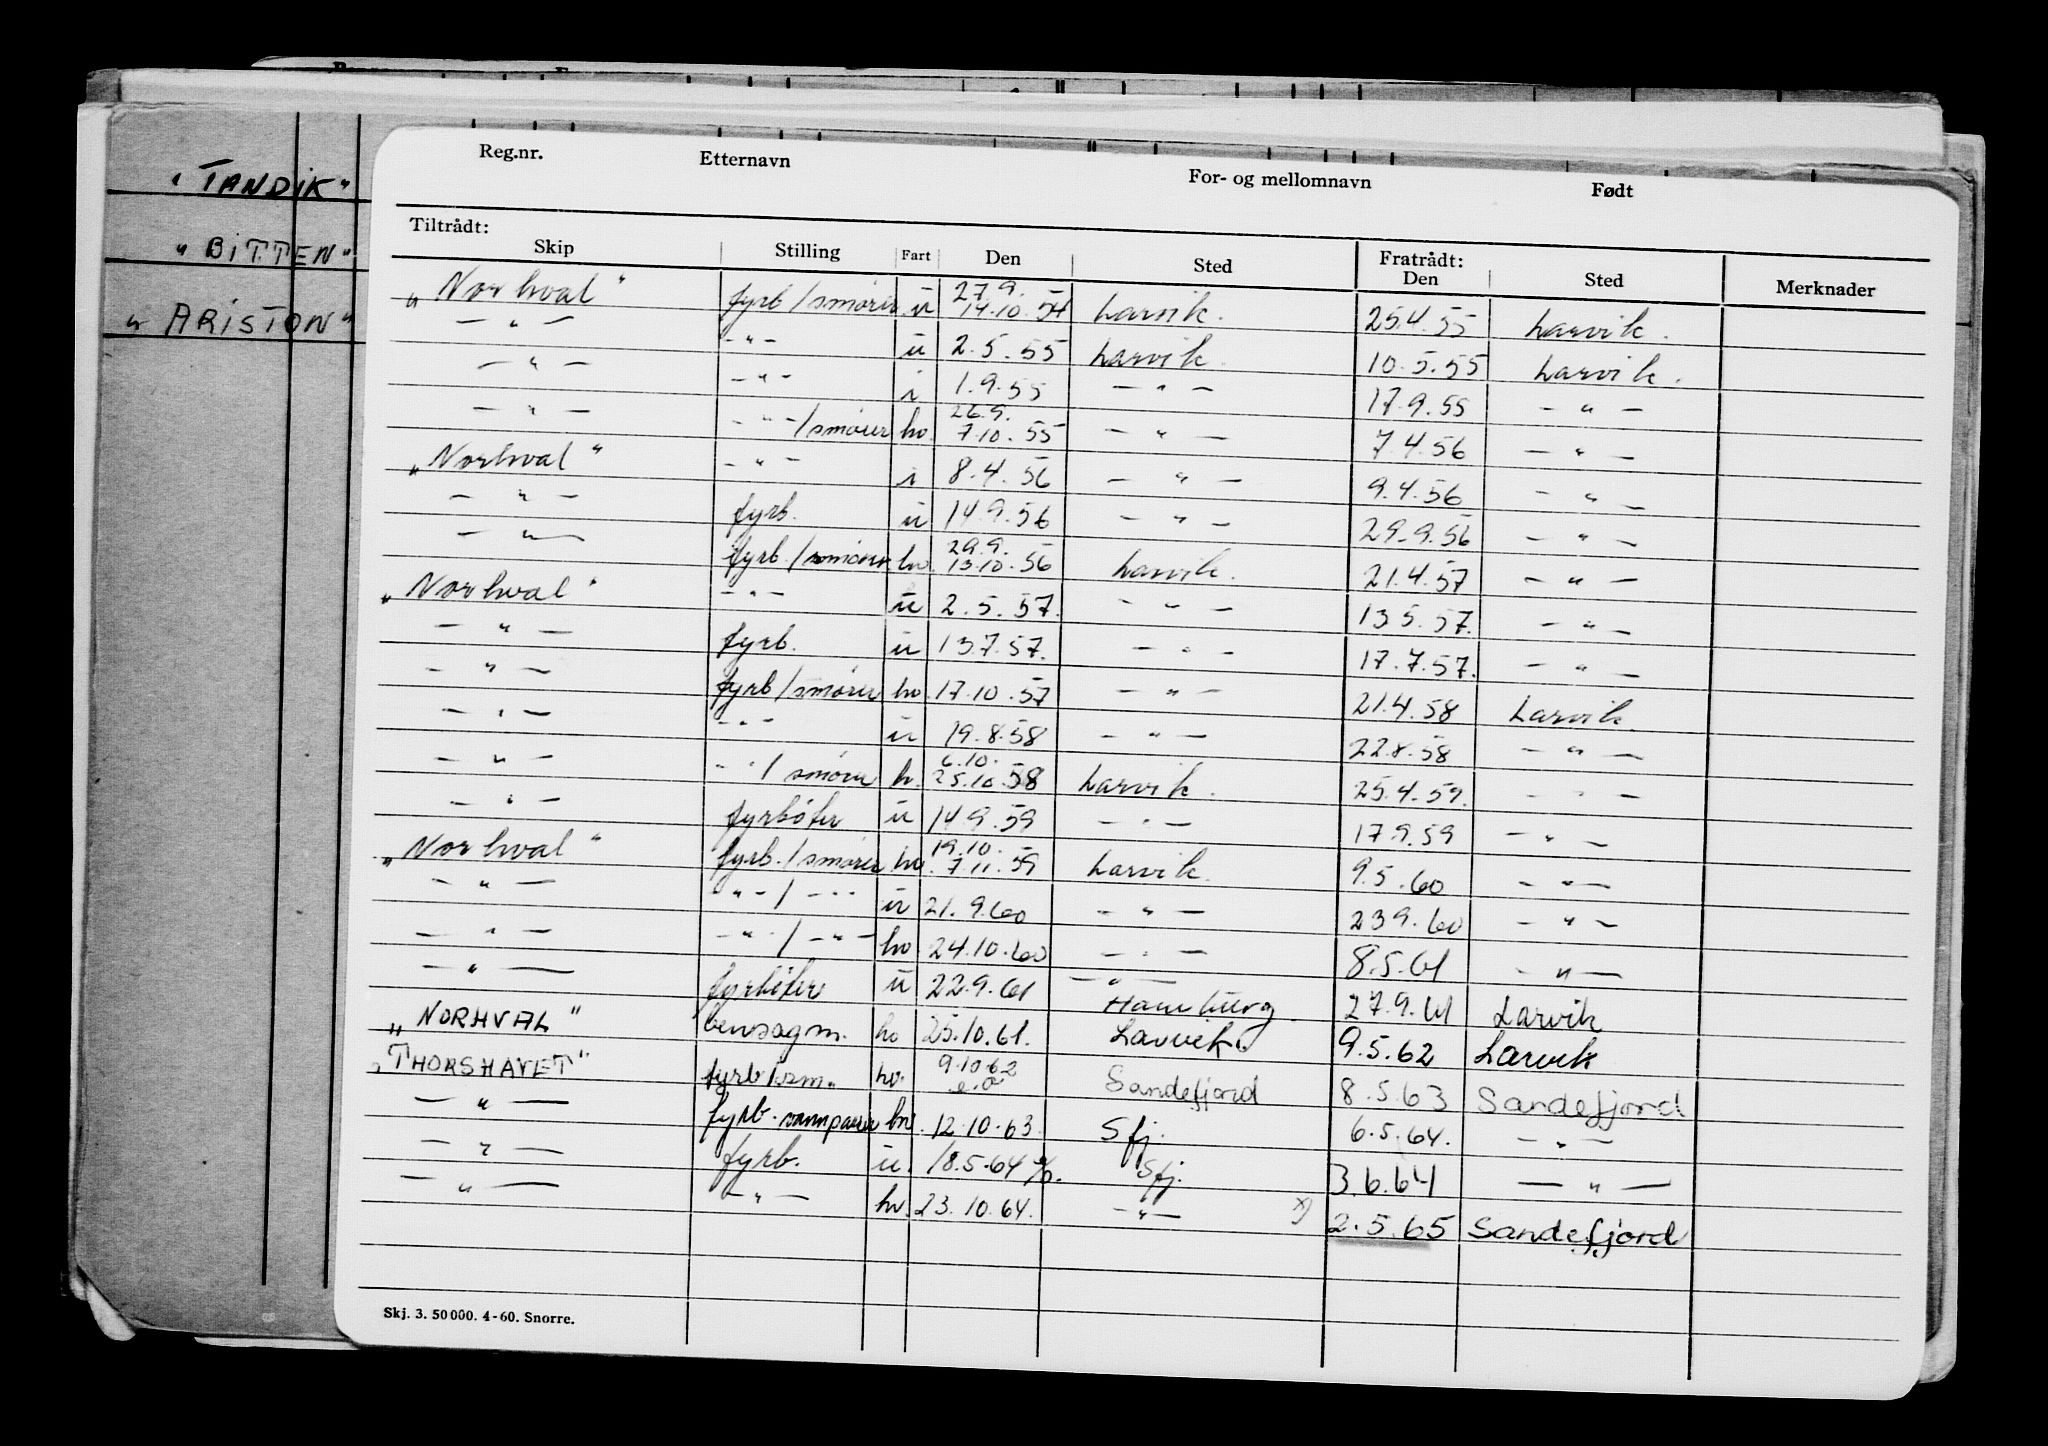 Reg.nr. Etternavn For- og mellomnavn Født
Tiltrådt: Fratrådt:
Skip Stilling Fart Den Sted Den Sted Merknader
„Norhval" fyrb/smører u 27.9. 14.10.54 Larvik. 25.4.55 Larvik.
— " — - " - u 2.5.55 Larvik. 10.5.55 Larvik.
— " — - " - i 1.9.55 — " — 17.9.55 — " —
— " — - " - /smører hv. 26.9. 7.10.55 — " — 7.4.56 — " —
„Norhval" - " - i 8.4.56 — " — 9.4.56 — " —
— " — fyrb. u 14.9.56 — " — 29.9.56 — " —
— " — fyrb./smører hv. 29.9. 13.10.56 Larvik. 21.4.57 — " —
„Norhval" - " - u 2.5.57. — " — 13.5.57. — " —
— " — fyrb. u 13.7.57. — " — 17.7.57. — " —
— " — fyrb/smører hv 17.10.57 — " — 21.4.58 Larvik.
— " — - " - u 19.8.58 — " — 22.8.58 — " —
— " — - " /smører h. 6.10. 25.10.58 Larvik. 25.4.59. — " —
— " — fyrbøter u 14.9.59 — " — 17.9.59 — " —
„Norhval" fyrb./smører hv 19.10. 7.11.59 Larvik. 9.5.60 — " —
— " — - " - / - " - u 21.9.60 — " — 23.9.60 — " —
— " — - " - / - " - hv. 24.10.60 — " — 8.5.61 — " —
— " — fyrbøter u 22.9.61 — " — Hamburg 27.9.61 Larvik
„NORHVAL" bensagm. hv 25.10.61. Larvik. 9.5.62 Larvik
„THORSHAVET" fyrb/sm. hv. 9.10.62 Sandefjord 8.5.63 Sandefjord
— " — fyrb. hv. 12.10.63. Sfj. 6.5.64. — " —
— " — fyrb. u. 18.5.64 Sfj. 3.6.64 — " —
— " — — " — hv. 23.10.64. — " — x) 2.5.65 Sandefjord
Skj. 3. 50 000. 4-60. Snorre.
„TANDIK"
„BITTEN"
„ARISTON"